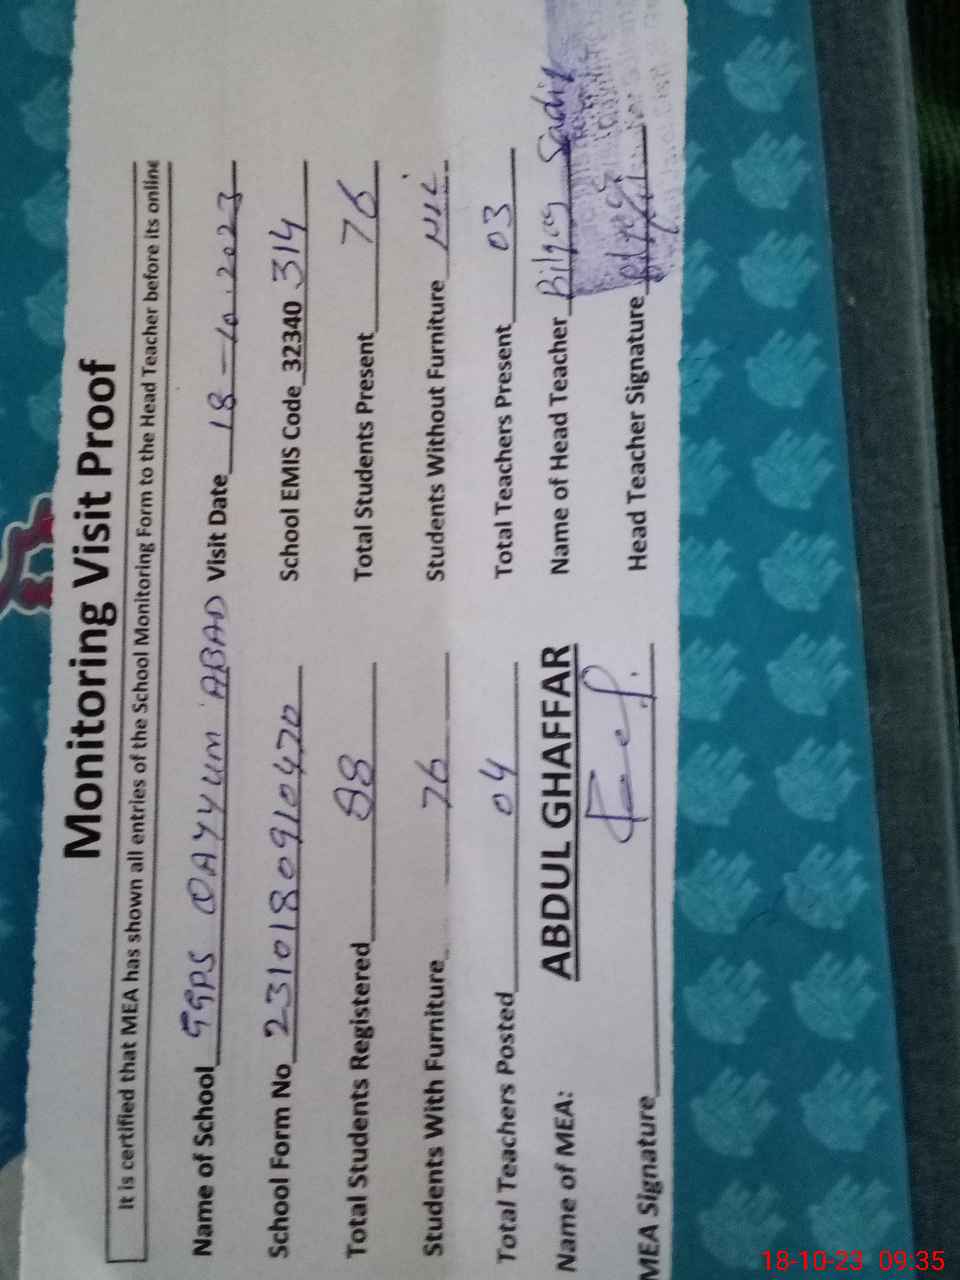 Monitoring Visit Proof
It is certified that MEA has shown all entries of the School Monitoring Form to the Head Teacher before its online
Name of School GGPS QAYYUM ABAD Visit Date 18-10.2023
School Form No 2310180910470 School EMIS Code 32340 314
Total Students Registered 88 Total Students Present 76
Students With Furniture 76 Students Without Furniture NIL
Total Teachers Posted 04 Total Teachers Present 03
Name of MEA: ABDUL GHAFFAR Name of Head Teacher Bilqas Sadiq
MEA Signature Head Teacher Signature
18-10-23 09:35